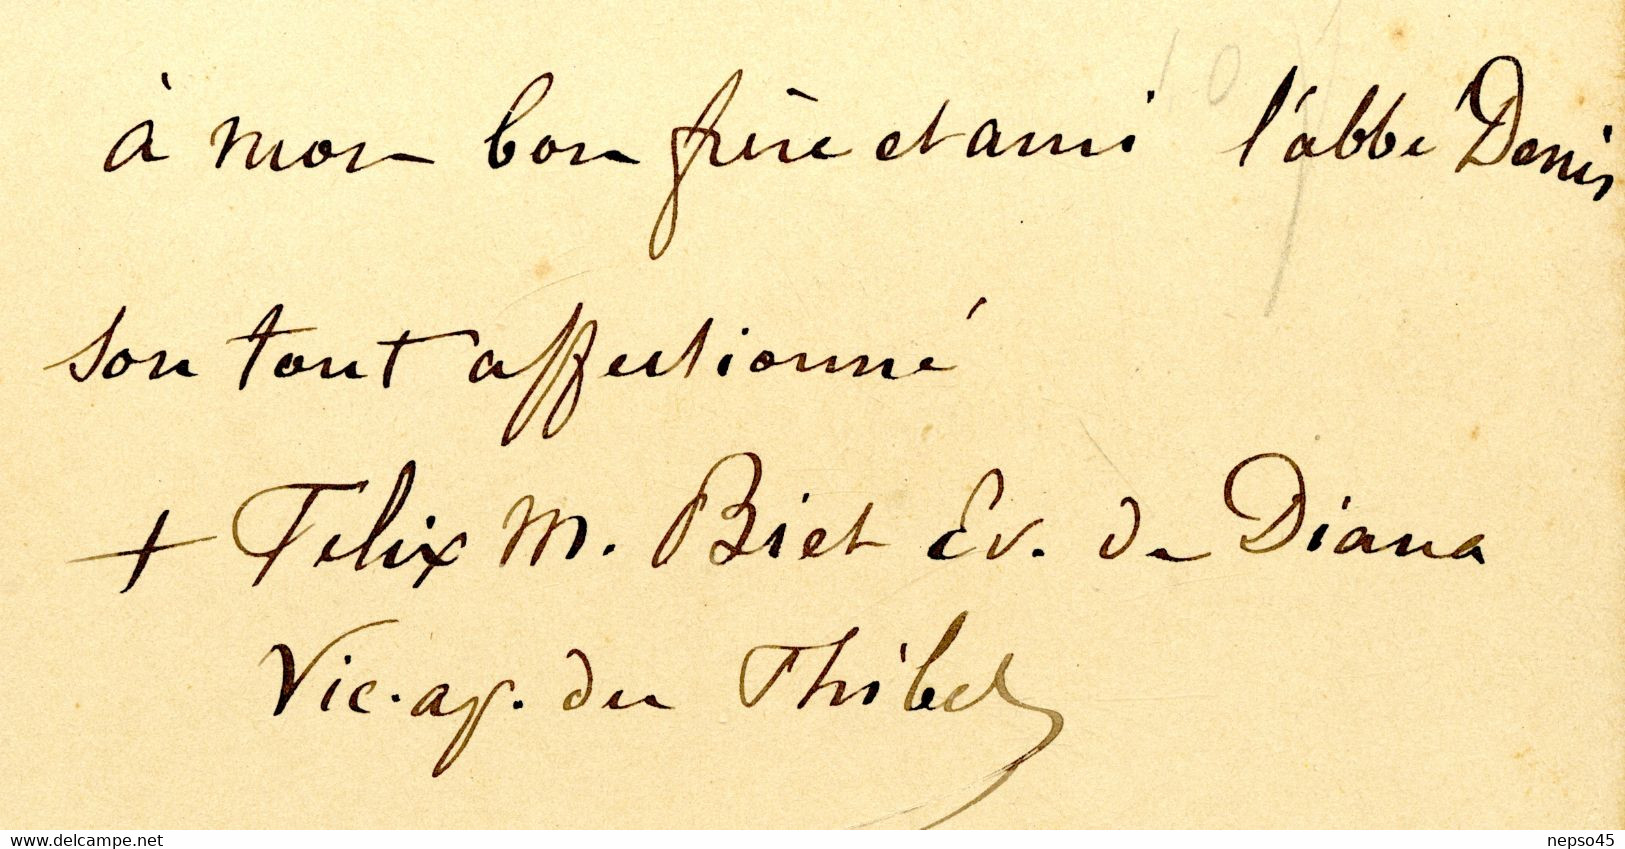 à mon bon frère et ami l'abbé Denis
son tout affectionné
+ Felix M. Biet Ev. de Diana
Vic. ap. du Thibet
delcampe.net
nepso45